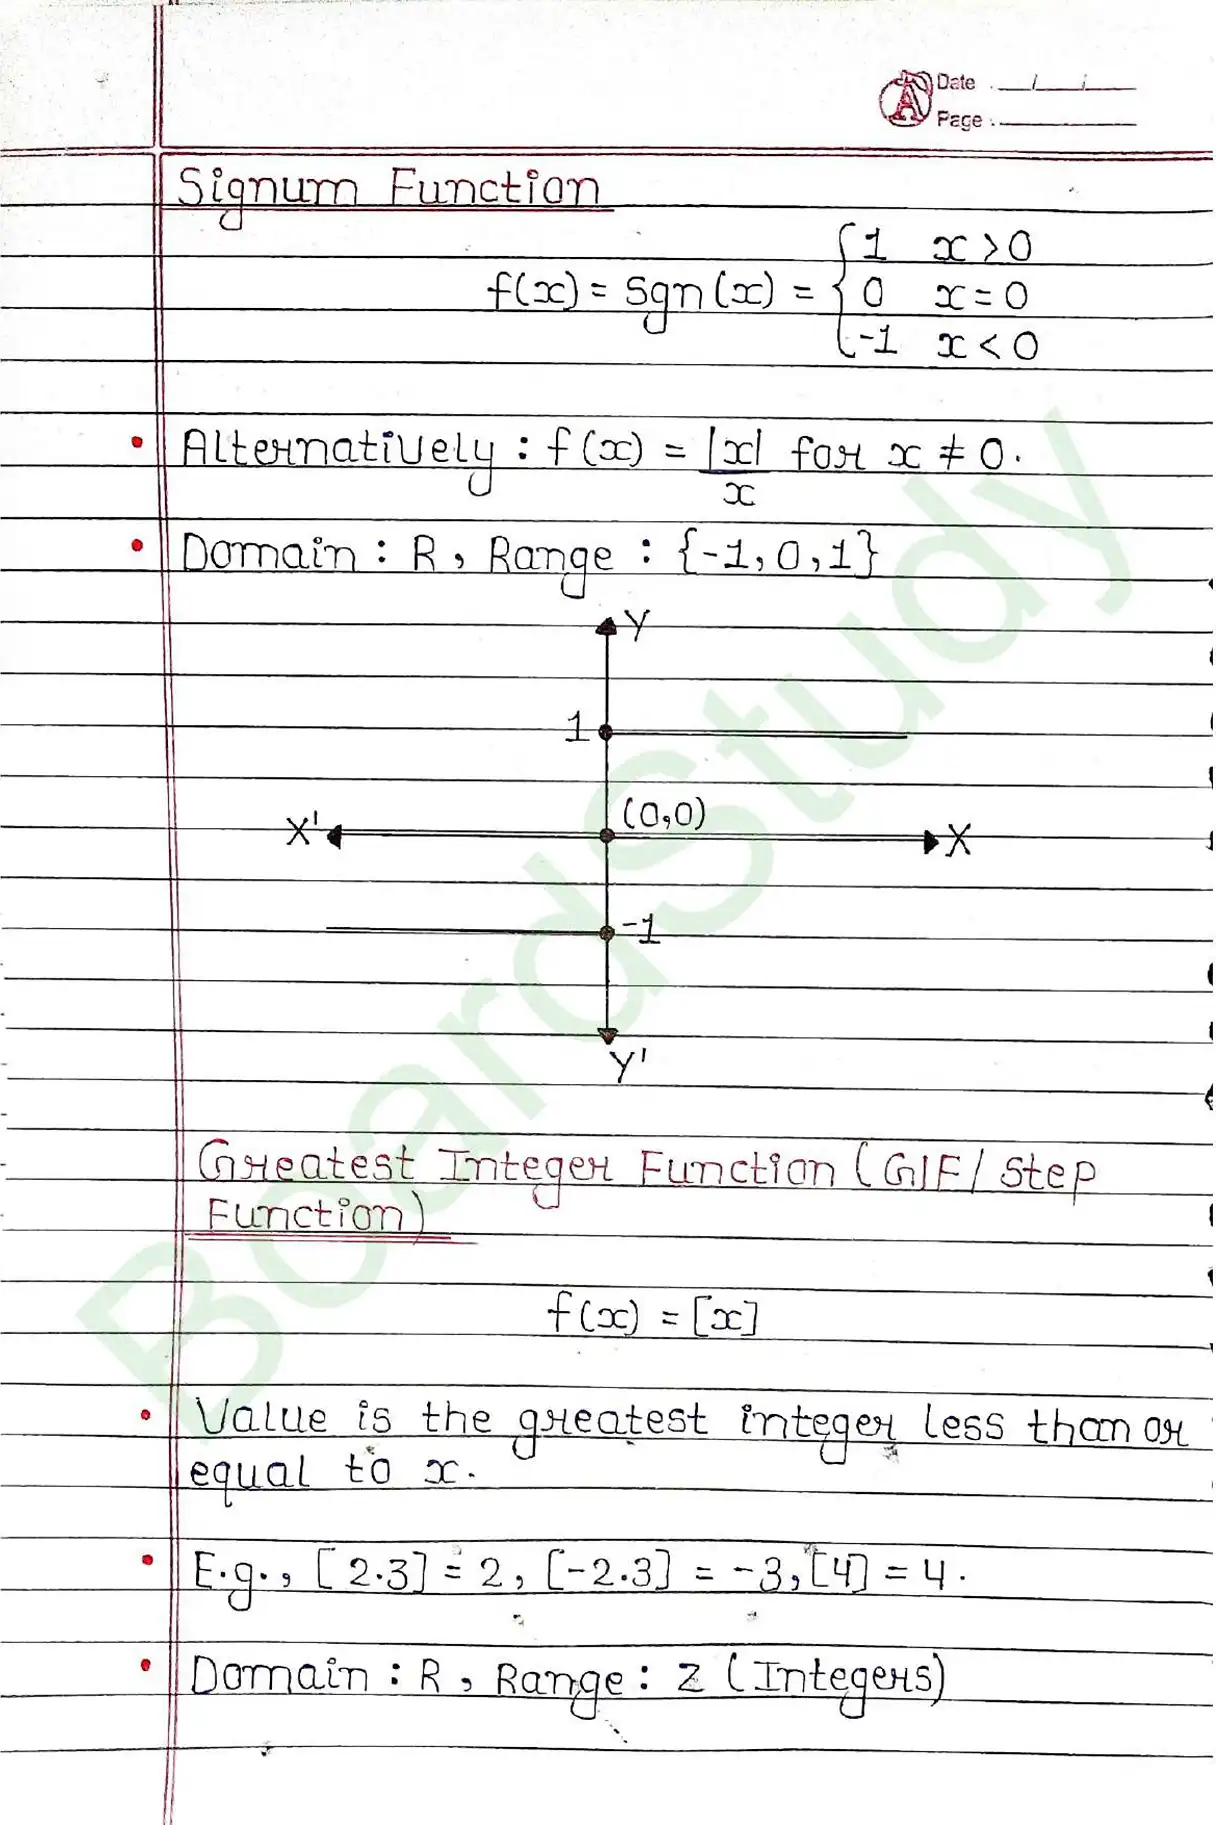 Date . __/__/__
Page : ________
Signum Function
f(x) = Sgn(x) = { 1 x > 0
0 x = 0
-1 x < 0
• Alternatively : f(x) = |x|/x for x ≠ 0.
• Domain : R, Range : {-1, 0, 1}
Y
1
(0,0)
X' X
-1
Y'
Greatest Integer Function (GIF/ Step
Function)
f(x) = [x]
• Value is the greatest integer less than or
equal to x.
• E.g., [2.3] = 2, [-2.3] = -3, [4] = 4.
• Domain : R, Range : Z (Integers)
BoardStudy